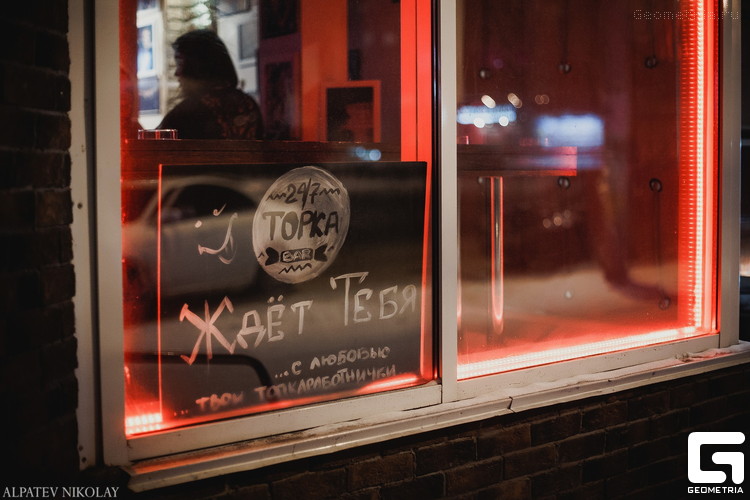 Geometria.ru
24/7
ТОРКА
BAR
Ждёт Тебя
...с любовью
...твои топкаработнички
ALPATEV NIKOLAY
GEOMETRIA